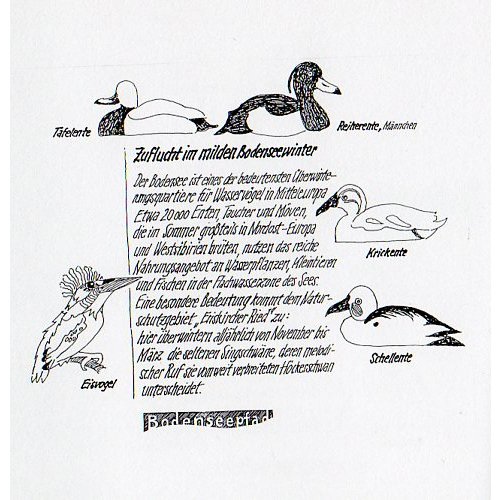 Tafelente
Reiherente, Männchen
Zuflucht im milden Bodenseewinter
Der Bodensee ist eines der bedeutensten Überwinte-
rungsquartiere für Wasservögel in Mitteleuropa
Etwa 20000 Enten, Taucher und Möven,
die im Sommer großteils in Nordost-Europa
und Westsibirien brüten, nutzen das reiche
Nahrungsangebot an Wasserpflanzen, Kleintieren
und Fischen in der Flachwasserzone des Sees.
Eine besondere Bedeutung kommt dem Natur-
schutzgebiet „Eriskircher Ried" zu:
hier überwintern alljährlich von November bis
März die seltenen Singschwäne, deren melodi-
scher Ruf sie vom weit verbreiteten Höckerschwan
unterscheidet.
Krickente
Schellente
Eisvogel
Bodenseepfad